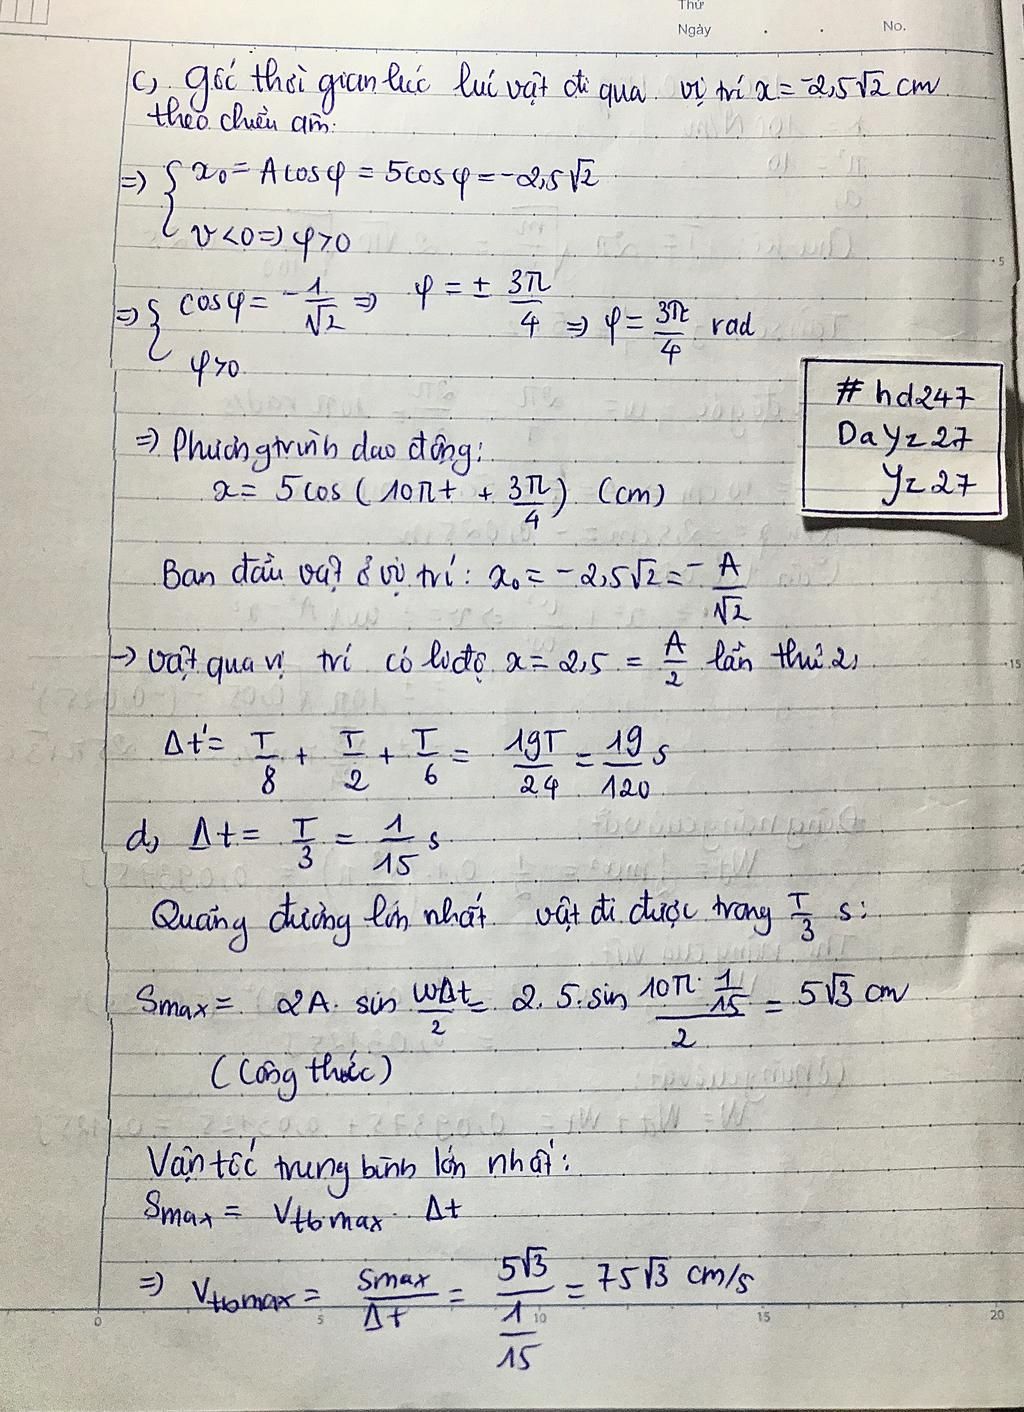 Thứ
Ngày . . No.
c, gốc thời gian lúc lúi vật đi qua vị trí x = -2,5√2 cm
theo chiều âm.
=> { x₀ = Acosφ = 5cosφ = -2,5√2
v < 0 => φ > 0
=> { cosφ = -1/√2 => φ = ± 3π/4 => φ = 3π/4 rad
φ > 0
# hd247
DaYz27
Yz27
=> Phương trình dao động:
x = 5cos(10πt + 3π/4) (cm)
Ban đầu vật ở vị trí: x₀ = -2,5√2 = -A/√2
-> vật qua vị trí có li độ x = 2,5 = A/2 lần thứ 2,
Δt' = T/8 + T/2 + T/6 = 19T/24 = 19/120 s
d, Δt = T/3 = 1/15 s
Quãng đường lớn nhất vật đi được trong T/3 s:
Smax = 2A. sin ωΔt/2 = 2. 5. sin (10π. 1/15)/2 = 5√3 cm
(Công thức)
Vận tốc trung bình lớn nhất:
Smax = Vtbmax. Δt
=> Vtbmax = Smax/Δt = 5√3/(1/15) = 75√3 cm/s
0 5 10 15 20